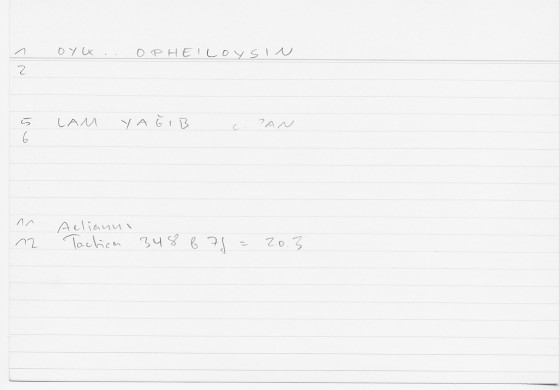 1 OYK.. OPHEILOYSIN
2
5 LAM YAĠIB
6
11 Aelianus
12 Tactica 348 B 7f = 20.3